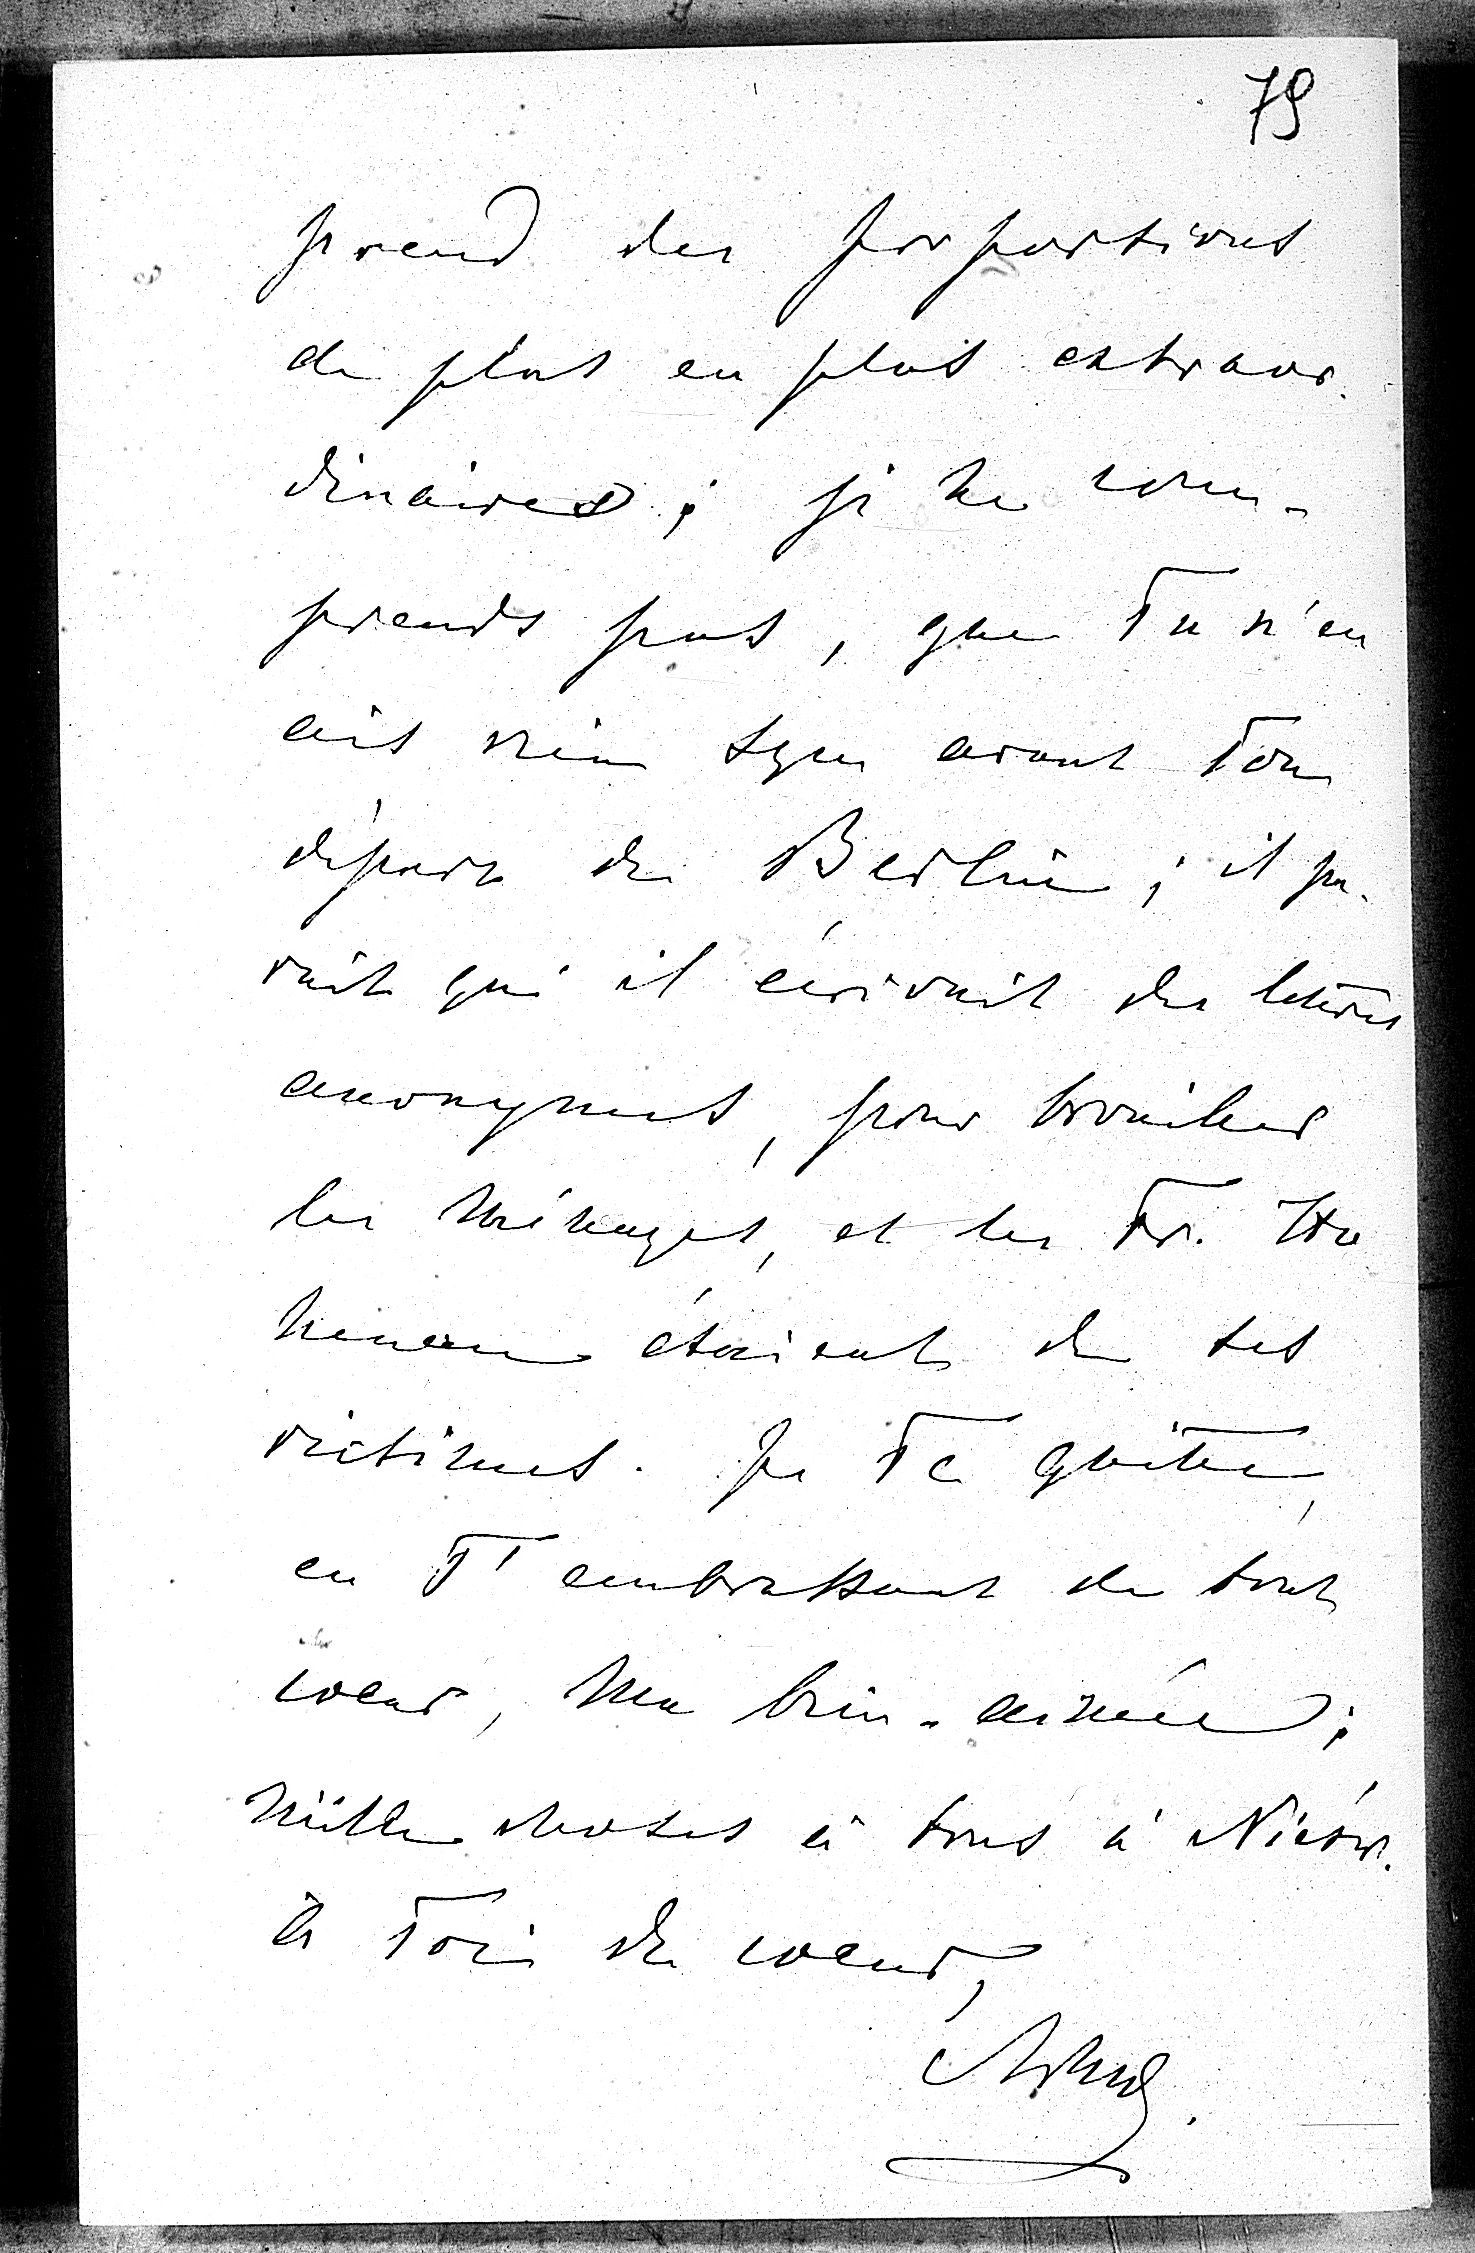 79
prend des proportions
de plus en plus extraor-
dinaires; je ne com-
prends pas, que Tu n'en
ais rien sçu avant Ton
départ de Berlin; il pa-
rait qu'il écrivait des lettres
anonymes, pour brouiller
les ménages, et les Fr. Ho
henau étaient de ses
victimes. Je Te quitte,
en T'embrassant de tout
coeur, Ma bien-aimée;
mille choses à tous à Nieśw.
à Toi de coeur,